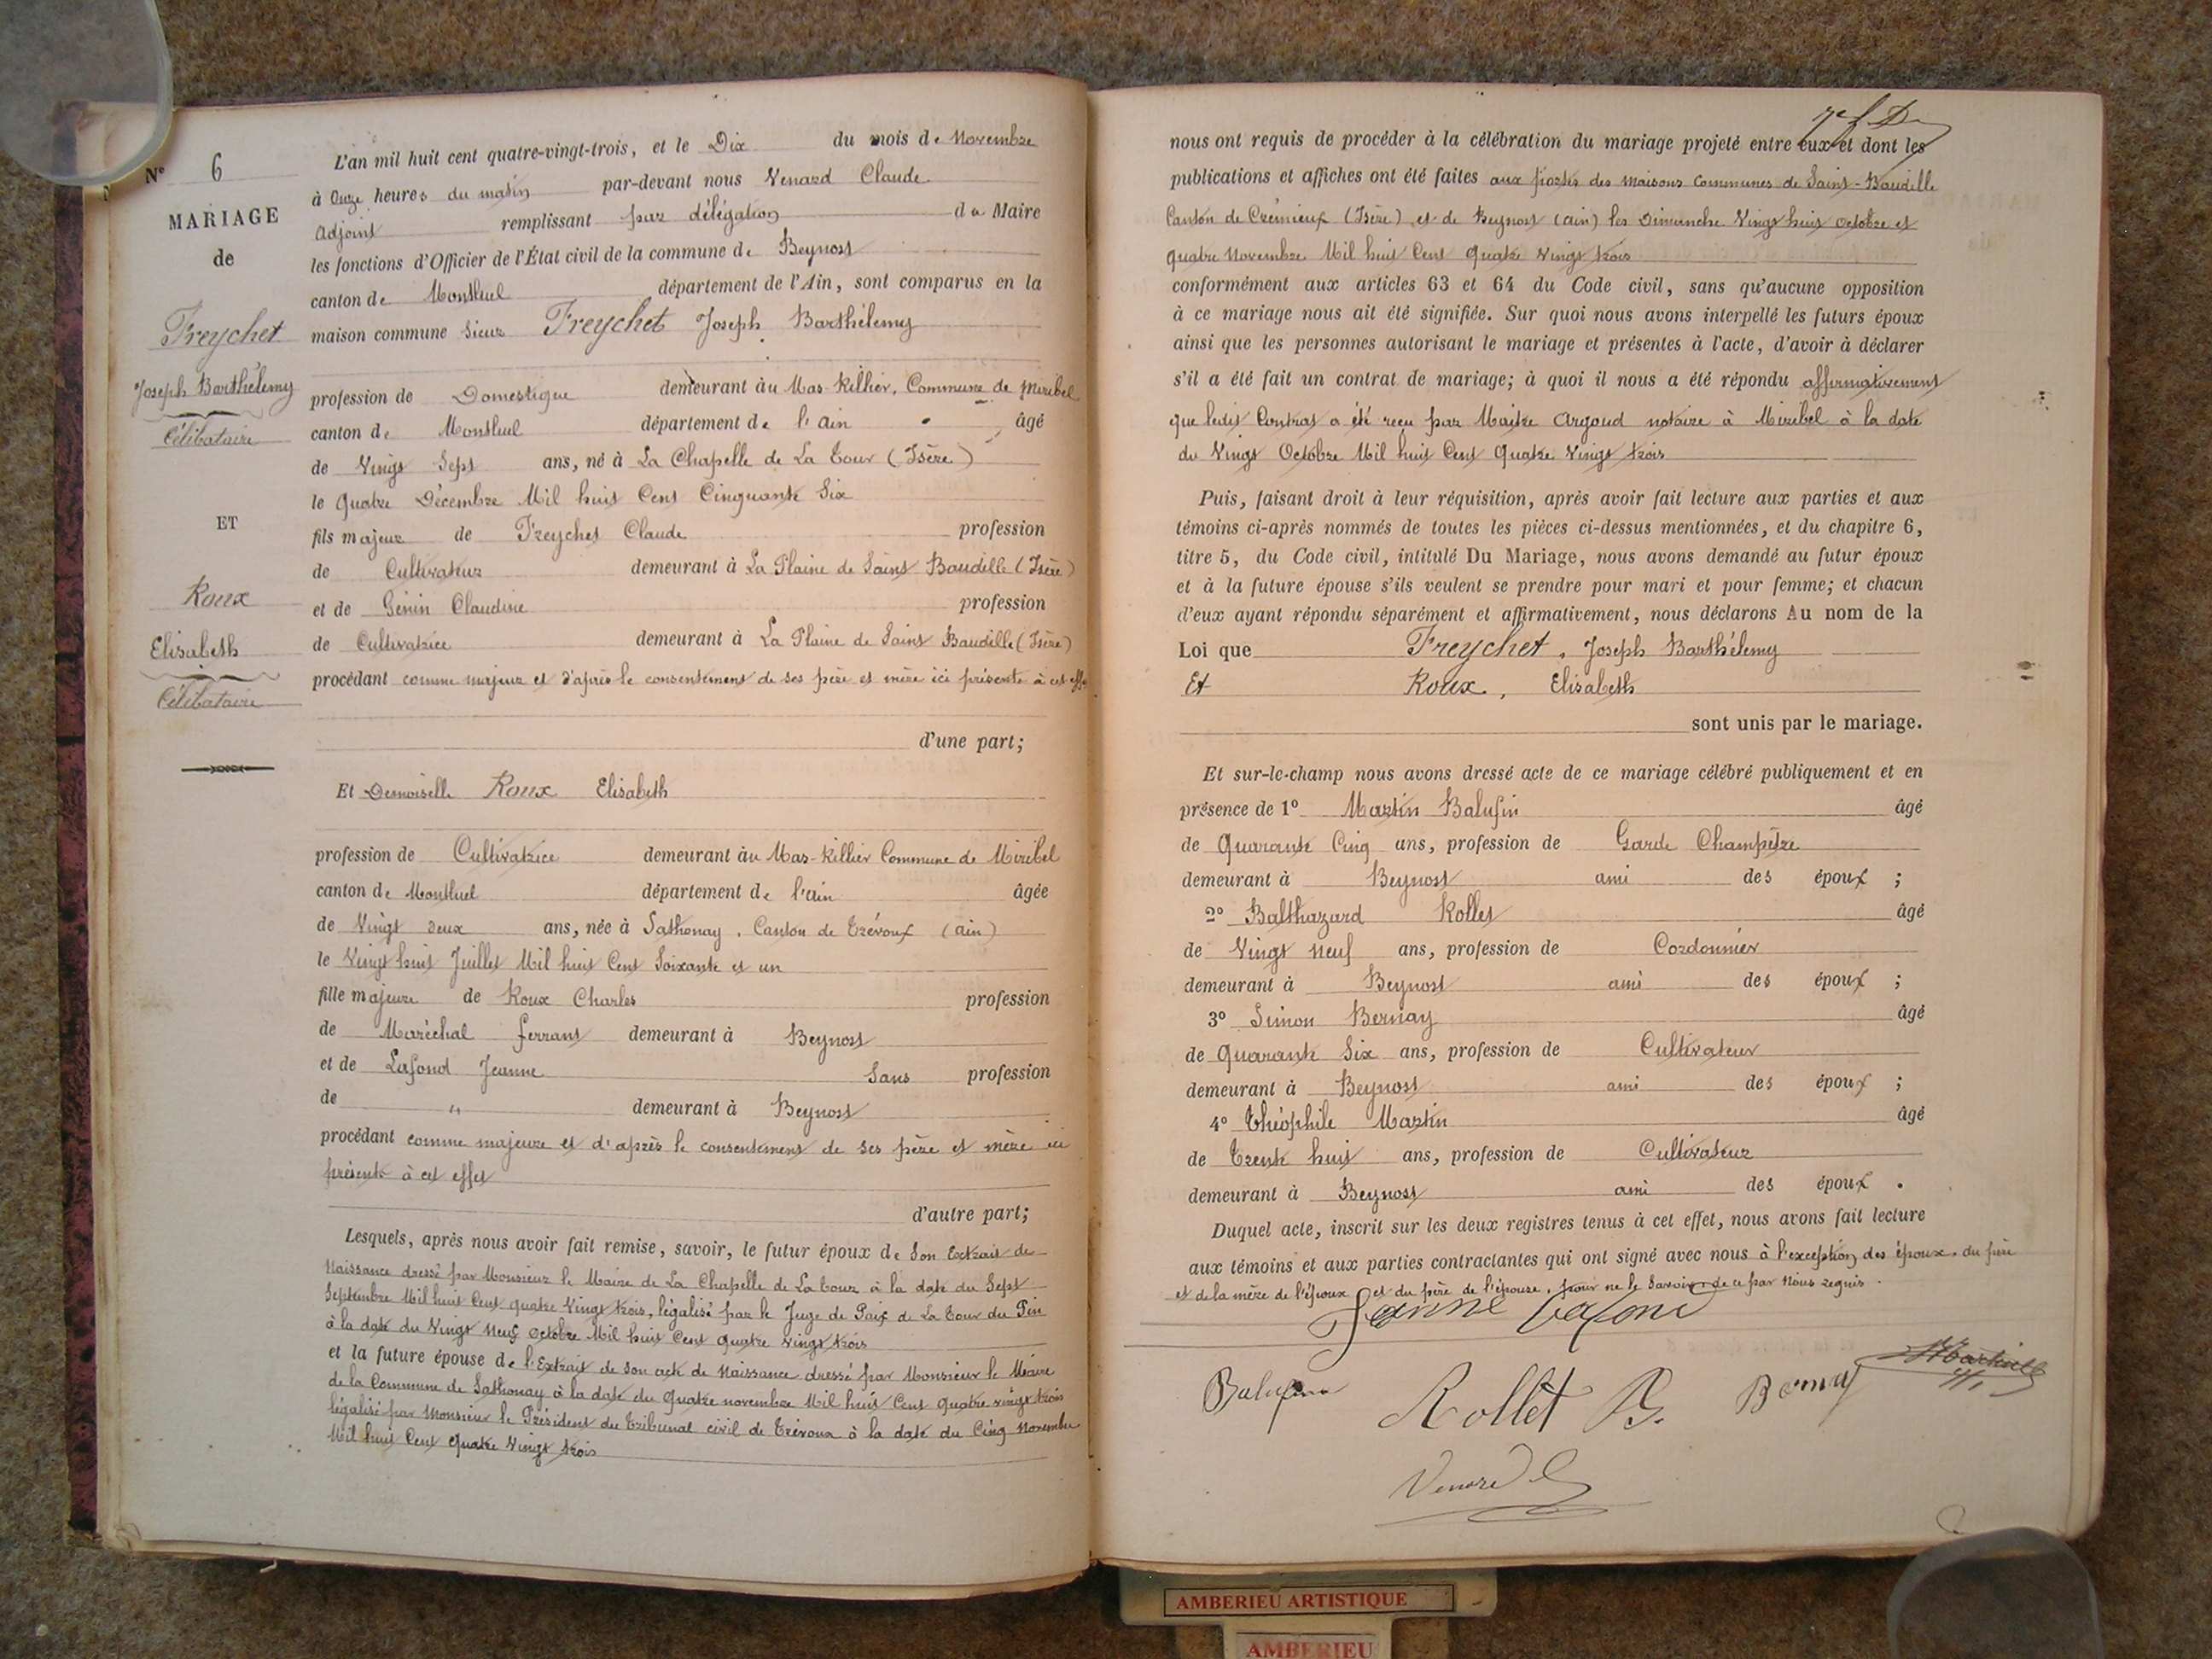 Nº 6
MARIAGE
de
Freychet
Joseph Barthélemy
Célibataire
ET
Roux
Elisabeth
Célibataire
L'an mil huit cent quatre-vingt-trois, et le Dix du mois de Novembre
à Onze heures du matin par-devant nous Venard Claude
adjoint remplissant par délégation du Maire
les fonctions d'Officier de l'État civil de la commune de Beynost
canton de Montluel département de l'Ain, sont comparus en la
maison commune Sieur Freychet Joseph Barthélemy
profession de Domestique demeurant au Mas-Rillier, Commune de Miribel
canton de Montluel département de l'ain âgé
de Vingt Sept ans, né à La Chapelle de La Tour (Isère)
le Quatre Décembre Mil huit Cent Cinquante Six
fils majeur de Freychet Claude profession
de Cultivateur demeurant à La Plaine de Saint Baudille (Isère)
et de Génin Claudine profession
de Cultivatrice demeurant à La Plaine de Saint Baudille (Isère)
procédant comme majeur et d'après le consentement de ses père et mère ici présents à cet effet
d'une part;
Et Demoiselle Roux Elisabeth
profession de Cultivatrice demeurant au Mas-Rillier Commune de Miribel
canton de Montluel département de l'ain âgée
de Vingt deux ans, née à Sathonay, Canton de Trévoux (ain)
le Vingt huit Juillet Mil huit Cent Soixante et un
fille majeure de Roux Charles profession
de Maréchal ferrant demeurant à Beynost
et de Lafond Jeanne Sans profession
de " demeurant à Beynost
procédant comme majeure et d'après le consentement de ses père et mère ici
présents à cet effet
d'autre part;
Lesquels, après nous avoir fait remise, savoir, le futur époux de Son Extrait de
Naissance dressé par Monsieur le Maire de La Chapelle de La Tour à la date du Sept
Septembre Mil huit Cent quatre Vingt trois, légalisé par le Juge de Paix de La Tour du Pin
à la date du Vingt Neuf Octobre Mil huit Cent quatre vingt trois
et la future épouse de l'Extrait de son acte de Naissance dressé par Monsieur le Maire
de la Commune de Sathonay à la date du Quatre novembre Mil huit Cent quatre vingt trois
légalisé par Monsieur le Président du Tribunal civil de Trévoux à la date du Cinq Novembre
Mil huit Cent Quatre Vingt trois
nous ont requis de procéder à la célébration du mariage projeté entre eux et dont les
publications et affiches ont été faites aux portes des Maisons Communes de Saint-Baudille
Canton de Crémieux (Isère) et de Beynost (ain) les Dimanche Vingt huit Octobre et
quatre Novembre Mil huit Cent Quatre Vingt trois
conformément aux articles 63 et 64 du Code civil, sans qu'aucune opposition
à ce mariage nous ait été signifiée. Sur quoi nous avons interpellé les futurs époux
ainsi que les personnes autorisant le mariage et présentes à l'acte, d'avoir à déclarer
s'il a été fait un contrat de mariage; à quoi il nous a été répondu affirmativement
que ledit Contrat a été reçu par Maitre Argoud notaire à Miribel à la date
du Vingt Octobre Mil huit Cent Quatre Vingt trois
Puis, faisant droit à leur réquisition, après avoir fait lecture aux parties et aux
témoins ci-après nommés de toutes les pièces ci-dessus mentionnées, et du chapitre 6,
titre 5, du Code civil, intitulé Du Mariage, nous avons demandé au futur époux
et à la future épouse s'ils veulent se prendre pour mari et pour femme; et chacun
d'eux ayant répondu séparément et affirmativement, nous déclarons Au nom de la
Loi que Freychet, Joseph Barthélemy
Et Roux, Elisabeth
sont unis par le mariage.
Et sur-le-champ nous avons dressé acte de ce mariage célébré publiquement et en
présence de 1º Martin Balufin âgé
de Quarante Cinq ans, profession de Garde Champêtre
demeurant à Beynost ami des époux ;
2º Balthazard Rollet âgé
de Vingt Neuf ans, profession de Cordonnier
demeurant à Beynost ami des époux ;
3º Simon Bernay âgé
de Quarante Six ans, profession de Cultivateur
demeurant à Beynost ami des époux ;
4º Théophile Martin âgé
de Trente huit ans, profession de Cultivateur
demeurant à Beynost ami des époux .
Duquel acte, inscrit sur les deux registres tenus à cet effet, nous avons fait lecture
aux témoins et aux parties contractantes qui ont signé avec nous à l'exception des époux, du père
et de la mère de l'époux et du père de l'épouse, pour ne le Savoir de ce par Nous requis.
Jeanne Lafond
Balufin Rollet B. Bernay
Venard
AMBERIEU ARTISTIQUE
AMBERIEU